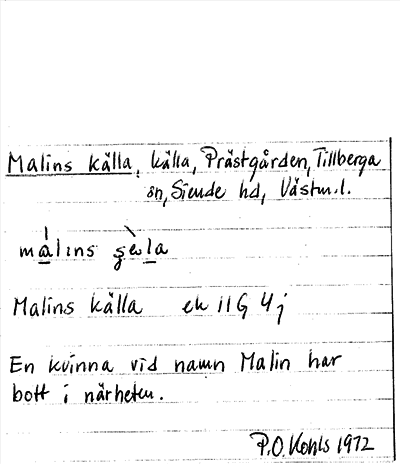 Malins källa, källa, Prästgården, Tillberga
sn, Siende hd, Västm.l.
málins
Malins källa ek 11G 4j
En kvinna vid namn Malin har
bott i närheten.
P.O. Kohls 1972